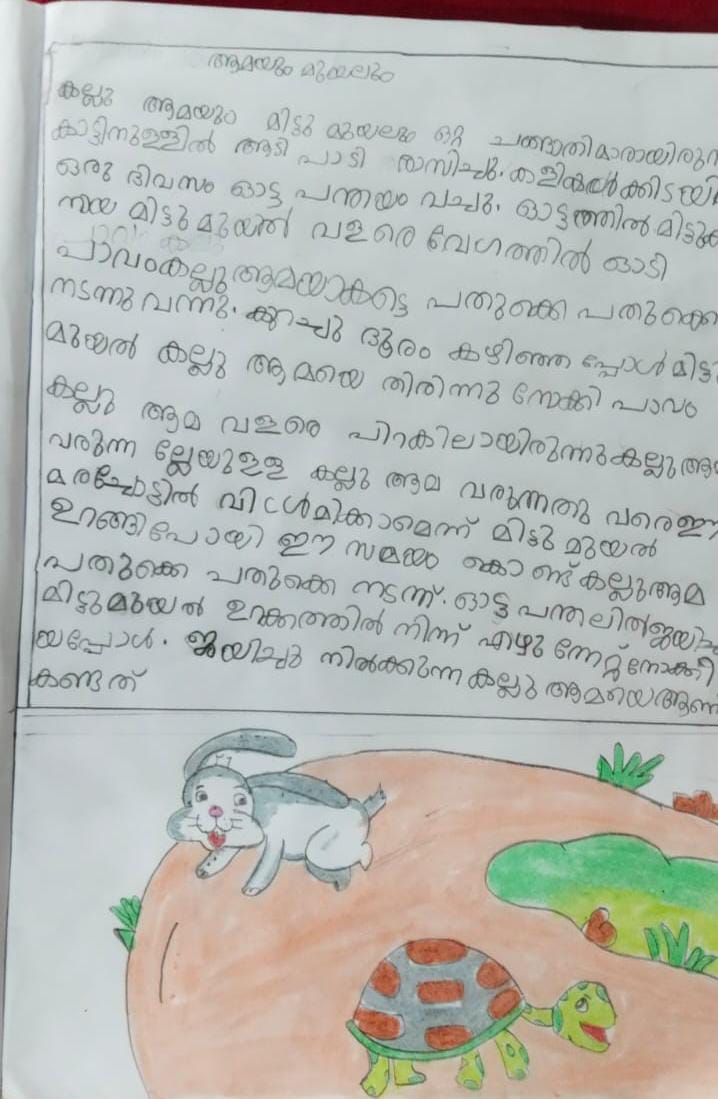 ആമയും മുയലും
കല്ലു ആമയും മിട്ടു മുയലും ഒറ്റ ചങ്ങാതിമാരായിരുന
കാട്ടിനുള്ളിൽ ആടി പാടി രസിച്ചു. കളികൾക്കിടയിൽ
ഒരു ദിവസം ഓട്ട പന്തയം വച്ചു. ഓട്ടത്തിൽ മിട്ടുക
നായ മിട്ടു മുയൽ വളരെ വേഗത്തിൽ ഓടി
പാവംകല്ലു ആമയാകട്ടെ പതുക്കെ പതുക്കെ
നടന്നു വന്നു. കുറച്ചു ദൂരം കഴിഞ്ഞ പ്പോൾ മിട്ടു
മുയൽ കല്ലു ആമയെ തിരിന്നു നോക്കി പാവം
കല്ലു ആമ വളരെ പിറകിലായിരുന്നു കല്ലു ആ
വരുന്ന ല്ലേയുള്ള കല്ലു ആമ വരുന്നതു വരെ ഈ
മരച്ചോട്ടിൽ വിശ്രമിക്കാമെന്ന് മിട്ടു മുയൽ
ഉറങ്ങിപോയി ഈ സമയം കൊണ്ട് കല്ലു ആമ
പതുക്കെ പതുക്കെ നടന്ന്. ഓട്ട പന്തലിൽ ജയി
മിട്ടുമുയൽ ഉറക്കത്തിൽ നിന്ന് എഴു ന്നേറ്റ് നോക്കി
യപ്പോൾ. ജയിച്ചു നിൽക്കുന്ന കല്ലു ആമയെ ആണ
കണ്ടത്